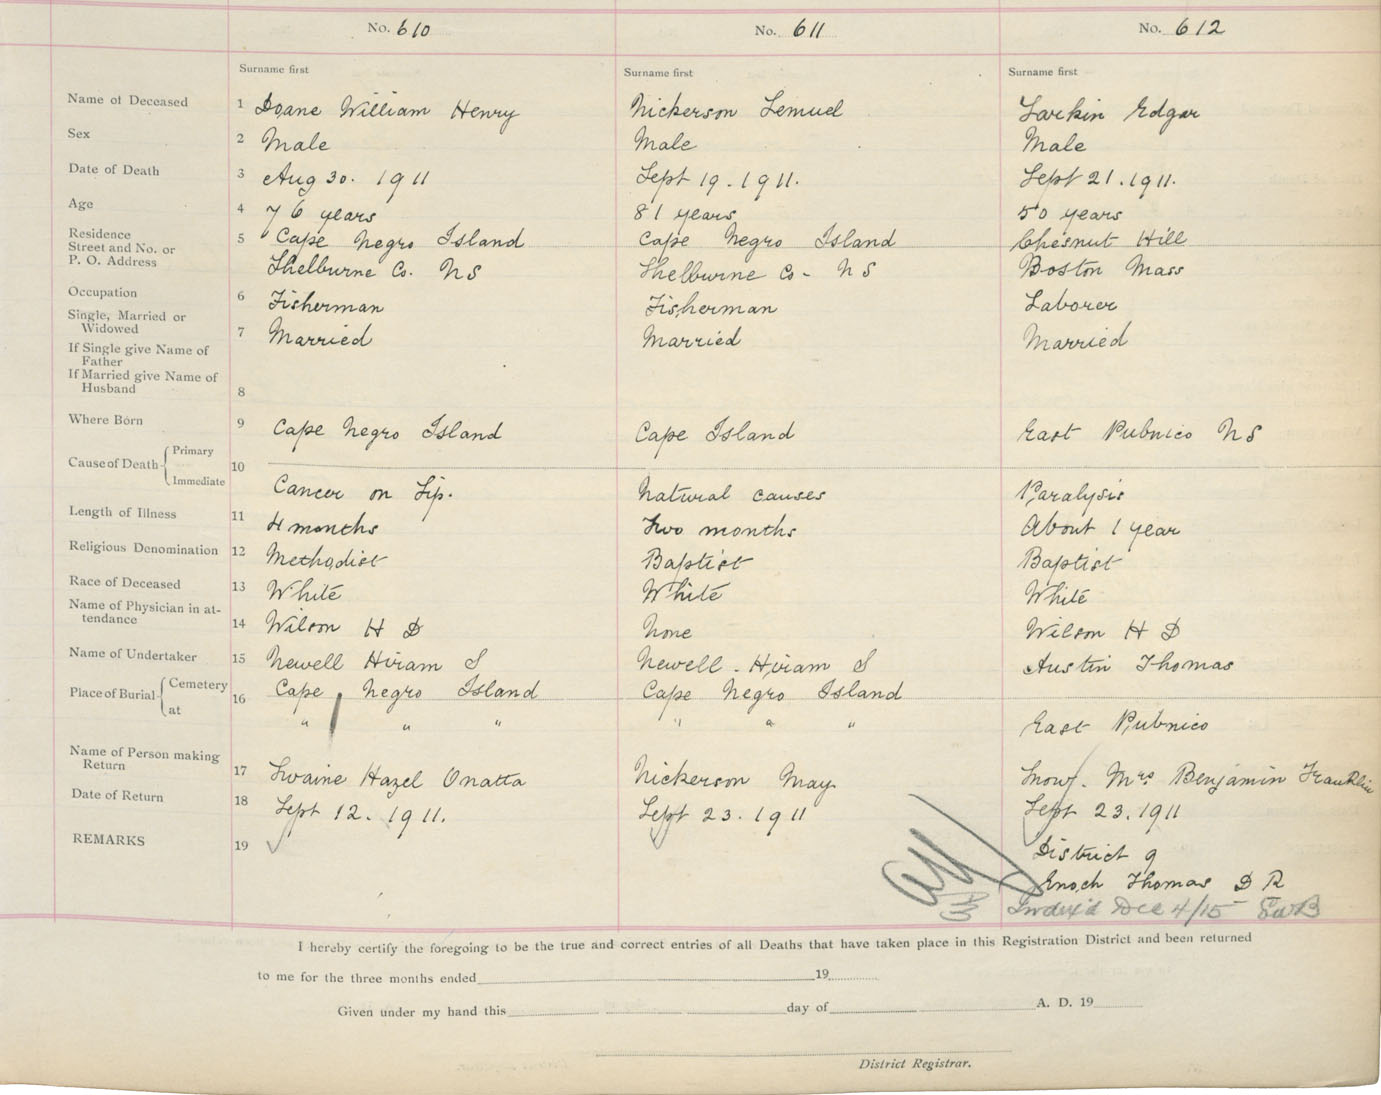 No. 610 No. 611 No. 612
Surname first Surname first Surname first
Name of Deceased 1 Doane William Henry Nickerson Lemuel Larkin Edgar
Sex 2 Male Male Male
Date of Death 3 Aug 30. 1911 Sept 19. 1911. Sept 21. 1911.
Age 4 76 years 81 years 50 years
Residence Street and No. or P. O. Address 5 Cape Negro Island Cape Negro Island Chesnut Hill
Shelburne Co. NS Shelburne Co- NS Boston Mass
Occupation 6 Fisherman Fisherman Laborer
Single, Married or Widowed 7 Married Married Married
If Single give Name of Father
If Married give Name of Husband 8
Where Born 9 Cape Negro Island Cape Island East Pubnico NS
Cause of Death Primary 10
Immediate Cancer on Lip. Natural causes Paralysis
Length of Illness 11 4 months Two months About 1 year
Religious Denomination 12 Methodist Baptist Baptist
Race of Deceased 13 White White White
Name of Physician in attendance 14 Wilson H D None Wilson H D
Name of Undertaker 15 Newell Hiram S Newell - Hiram S Austin Thomas
Place of Burial Cemetery 16 Cape Negro Island Cape Negro Island
at " " " " " " East Pubnico
Name of Person making Return 17 Swaine Hazel Onatta Nickerson May. Snow. Mrs Benjamin Franklin
Date of Return 18 Sept 12. 1911. Sept 23. 1911 Sept 23. 1911
REMARKS 19 District 9
Enoch Thomas D R
Index'd Dec 4/15
I hereby certify the foregoing to be the true and correct entries of all Deaths that have taken place in this Registration District and been returned
to me for the three months ended 19
Given under my hand this day of A. D. 19
District Registrar.